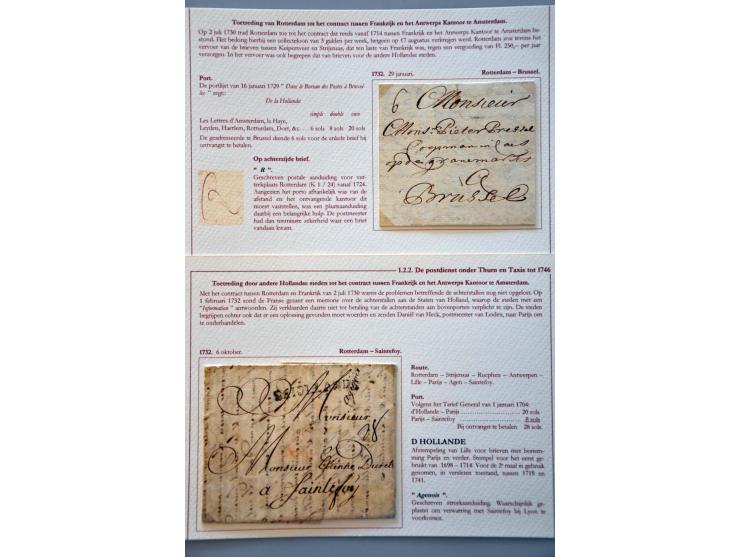 Toetreding van Rotterdam tot het contract tussen Frankrijk en het Antwerps Kantoor te Amsterdam.
Op 2 juli 1730 trad Rotterdam toe tot het contract dat reeds vanaf 1714 tussen Frankrijk en het Antwerps Kantoor te Amsterdam be-
stond. Het bedong hierbij een collecteloon van 3 gulden per week, hetgeen op 17 augustus verkregen werd. Rotterdam zou tevens het
vervoer van de brieven tussen Kuipersveer en Strijensas, dat ten laste van Frankrijk was, tegen een vergoeding van Fl. 250,- per jaar
verzorgen. In het vervoer was ook begrepen dat van brieven voor de andere Hollandse steden.
1732. 29 januari. Rotterdam – Brussel.
Port.
De portlijst van 16 januari 1729 "Dans le Bureau des Postes à Bruxel-
les" zegt:
De la Hollande
simple double once
Les Lettres d'Amsterdam, la Haye,
Leyden, Haerlem, Rotterdam, Dort, &c. . . 6 sols 8 sols 20 sols
De geadresseerde te Brussel diende 6 sols voor de enkele brief bij
ontvangst te betalen.
Op achterzijde brief.
" R ".
Geschreven postale aanduiding voor ver-
trekplaats Rotterdam (K 1 / 24) vanaf 1724.
Aangezien het porto afhankelijk was van de
afstand en het ontvangende kantoor dit
moest vaststellen, was een plaatsaanduiding
daarbij een belangrijke hulp. De postmeester
had dan tenminste zekerheid waar een brief
vandaan kwam.
6 Monsieur
Mons: Pieter Pressel
Coopman in Laes
op de graenmarkt
a
Brussel
1.2.2. De postdienst onder Thurn en Taxis tot 1746
Toetreding door andere Hollandse steden tot het contract tussen Frankrijk en het Antwerps Kantoor te Amsterdam.
Met het contract tussen Rotterdam en Frankrijk van 2 juli 1730 waren de problemen betreffende de achterstallen nog niet opgelost. Op
1 februari 1732 zond de Franse gezant een memorie over de achterstallen aan de Staten van Holland, waarop de steden met een
"Information" antwoorden. Zij verklaarden daarin niet tot betaling van de achterstanden aan bovenporten verplicht te zijn. De steden
begrijpen echter ook dat er een oplossing gevonden moet woerden en zenden Daniël van Heck, postmeester van Leiden, naar Parijs om
te onderhandelen.
1732. 6 oktober. Rotterdam – Saintefoy.
Route.
Rotterdam – Strijensas – Rucphen – Antwerpen –
Lille – Parijs – Agen – Saintefoy.
Port.
Volgens het Tarief General van 1 januari 1704:
d'Hollande – Parijs ........................ 20 sols
Parijs – Saintefoy ........................ 8 sols
Bij ontvangst te betalen 28 sols.
D HOLLANDE
Afstempeling van Lille voor brieven met bestem-
ming Parijs en verder. Stempel voor het eerst ge-
bruikt van 1698 – 1714. Voor de 2e maal in gebruik
genomen, in versleten toestand, tussen 1718 en
1741.
" Agenois ".
Geschreven streekaanduiding. Waarschijnlijk ge-
plaatst om verwarring met Saintefoy bij Lyon te
voorkomen.
Monsieur
28
Monsieur Etienne Duret
a Saintefoy